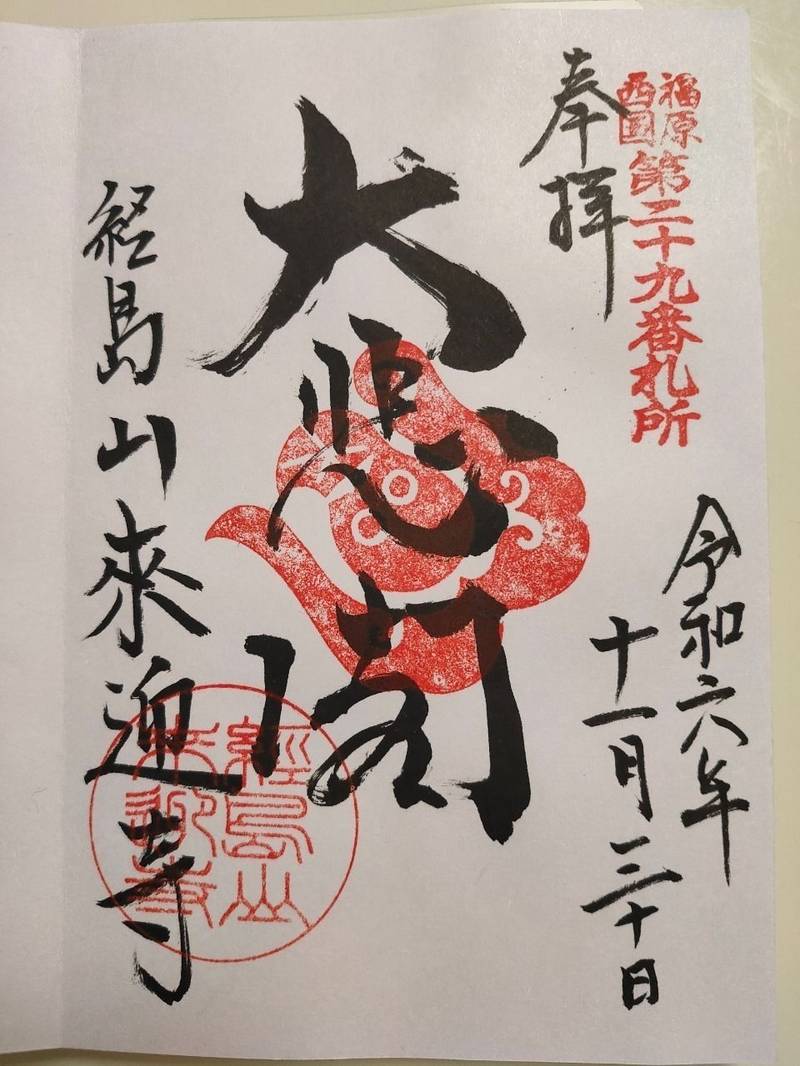 福原
西国
第二十九番札所
奉拝
令和六年
十一月三十日
大悲閣
経島山来迎寺
經島山
来迎寺